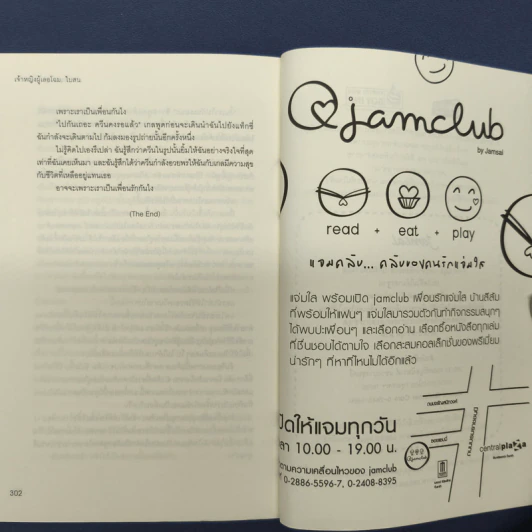 เจ้าหญิงผู้เลอโฉม: ใบสน
เพราะเราเป็นเพื่อนกันไง
"ไปกันเถอะ ควีนคงรอแล้ว" เกลพูดก่อนจะเดินนำฉันไปยังแท็กซี่
ฉันกำลังจะเดินตามไป ก็มองรูปถ่ายนั้นอีกครั้งหนึ่ง
ไม่รู้คิดไปเองรึเปล่า ฉันรู้สึกว่าควีนในรูปนั้นยิ้มให้ฉันอย่างจริงใจที่สุด
เท่าที่ฉันเคยเห็นมา และฉันรู้สึกได้ว่าควีนกำลังอวยพรให้ฉันกับเกลมีความสุข
กับชีวิตที่เหลืออยู่แทนเธอ
อาจจะเพราะเราเป็นเพื่อนรักกันไง
(The End)
302
jamclub
by Jamsai
read + eat + play
แจมคลับ... คลับของคนรักแจ่มใส
แจ่มใส พร้อมเปิด jamclub เพื่อนรักแจ่มใส บ้านสีส้ม
ที่พร้อมให้แฟนๆ แจ่มใสมารวมตัวกันทำกิจกรรมสนุกๆ
ได้พบปะเพื่อนๆ และเลือกอ่าน เลือกซื้อหนังสือทุกเล่ม
ที่ชื่นชอบได้ตามใจ เลือกสะสมคอลเล็กชั่นของพรีเมี่ยม
น่ารักๆ ที่หาที่ไหนไม่ได้อีกแล้ว
ปิดให้แจมทุกวัน
ลา 10.00 - 19.00 น.
ตามความเคลื่อนไหวของ jamclub
0-2886-5596-7, 0-2408-8395
ถนนบรมราชชนนี
jamclub
centralplaza